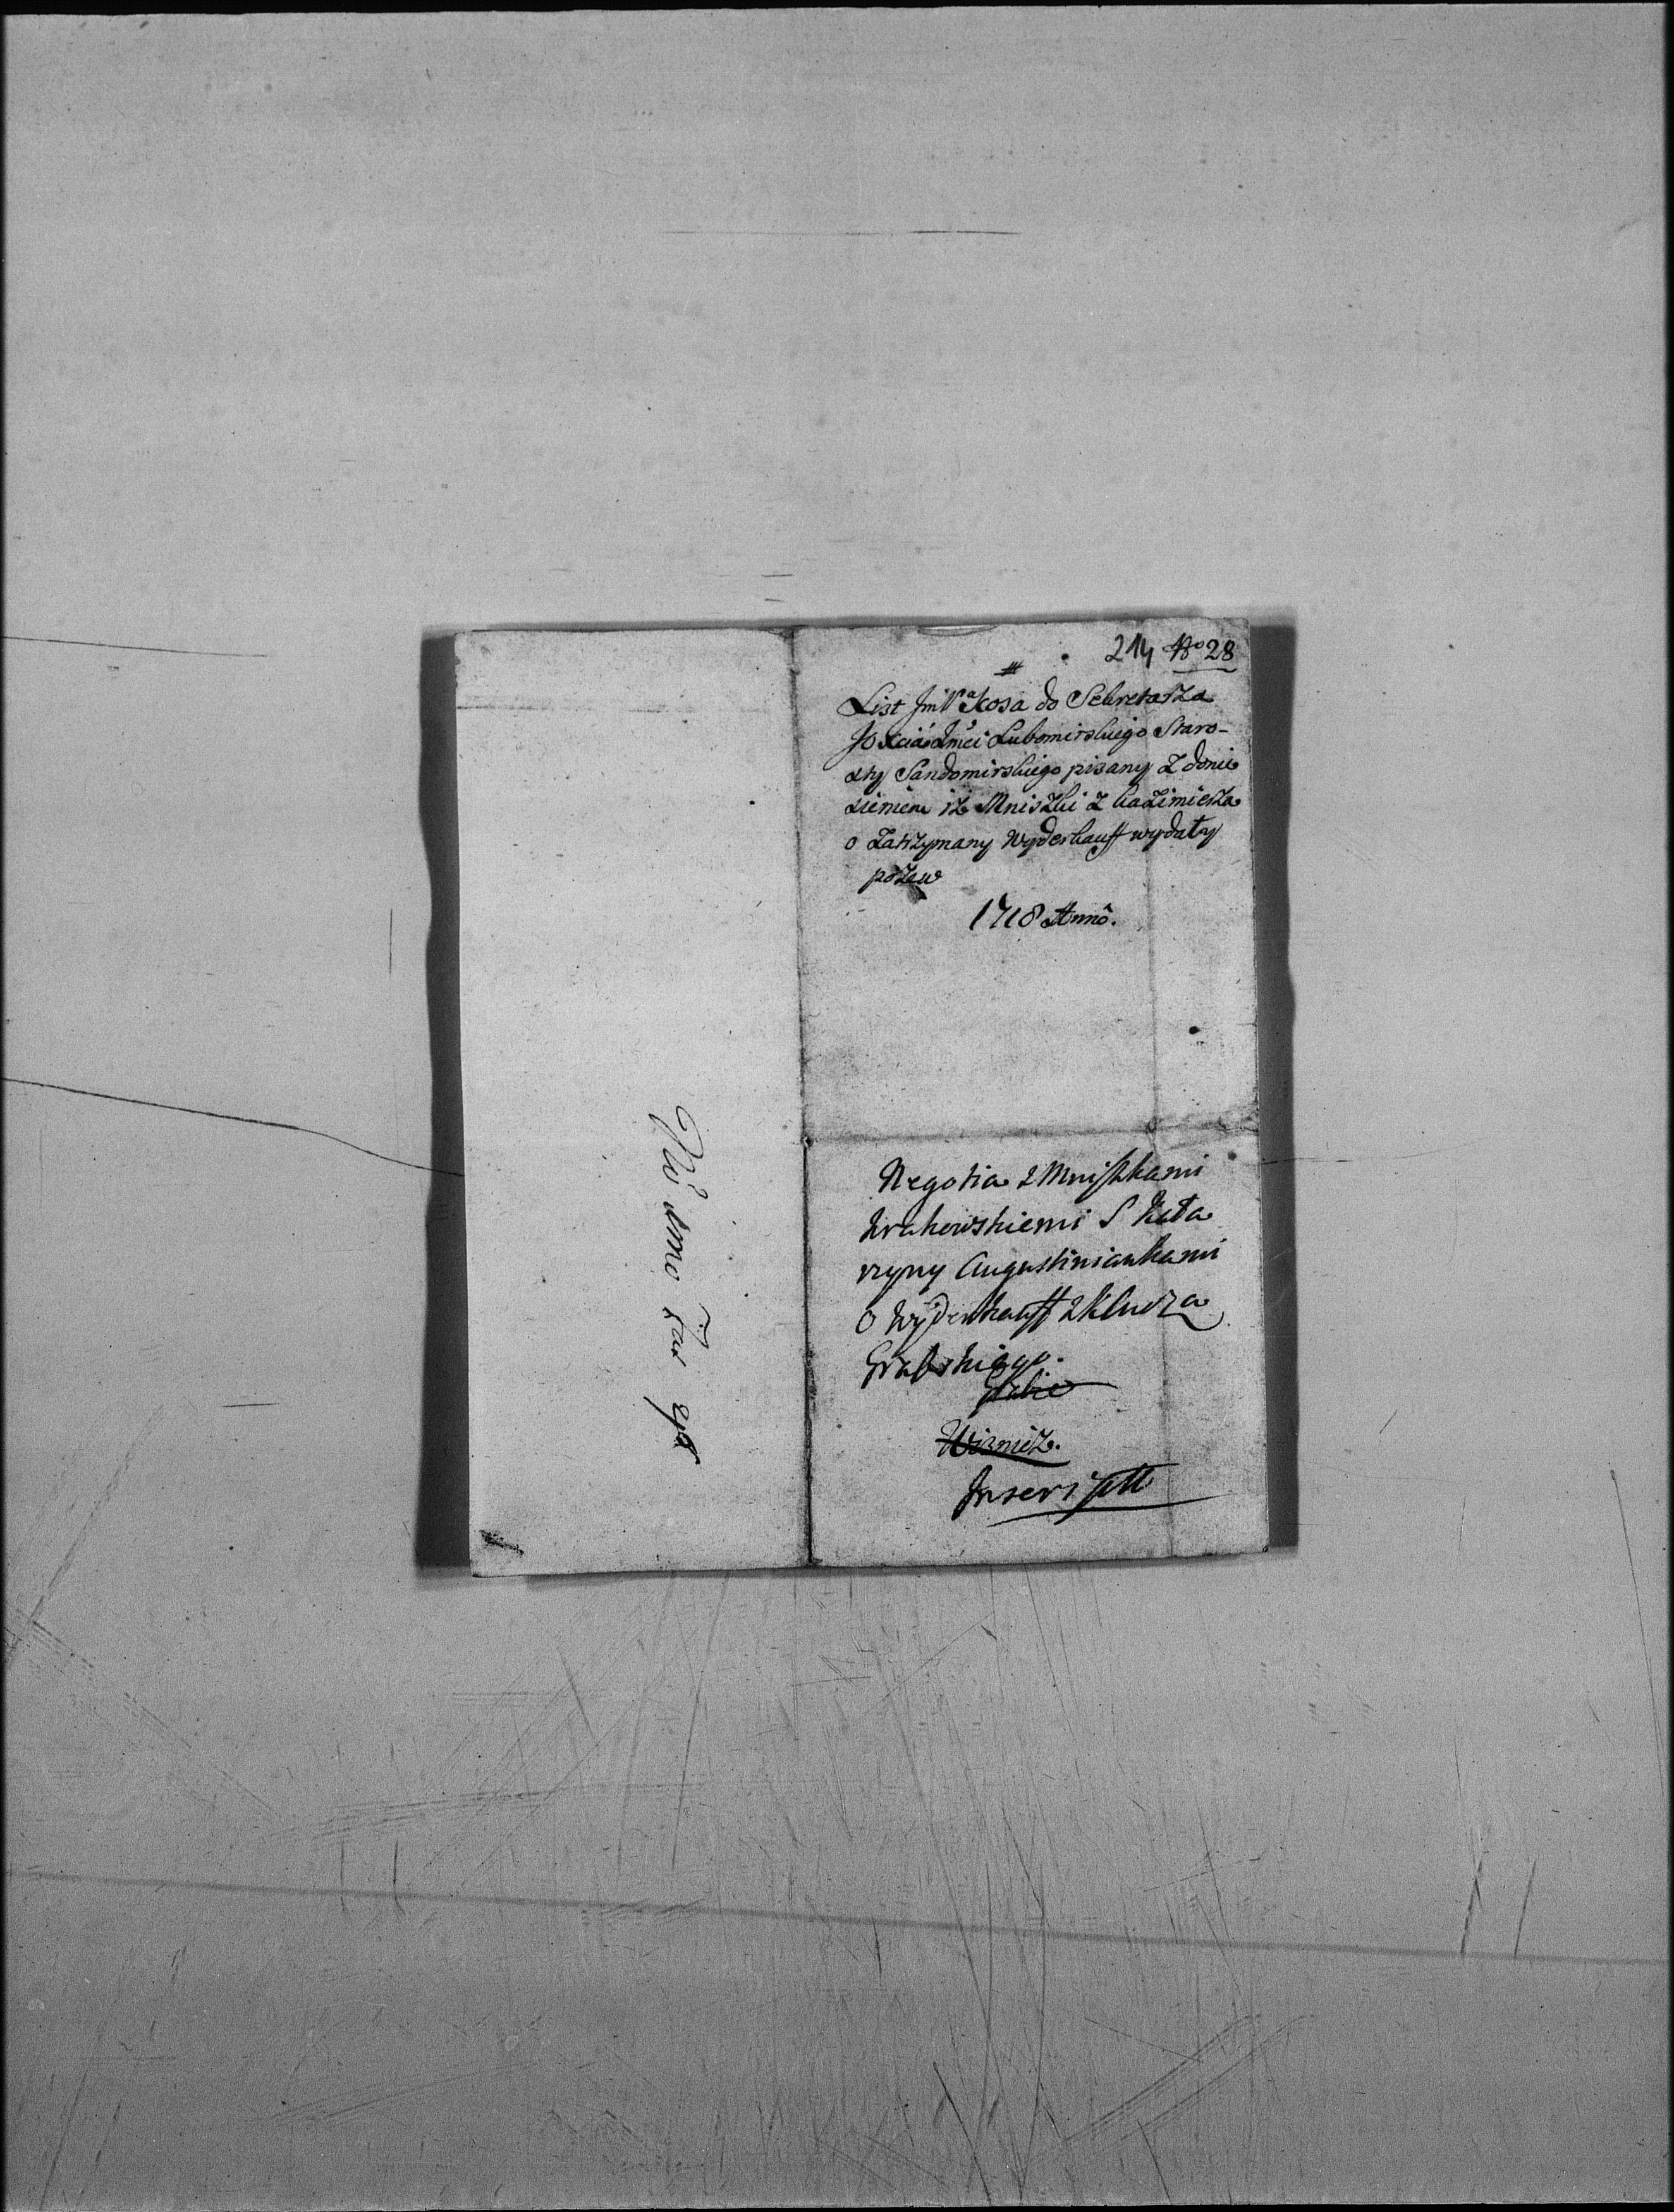 214 No 28
List Jm Pa Kosa do Sekretarza
JO Xcia Jmci Lubomirskiego Staro-
sty Sandomirskiego pisany z donie
sieniem iż Mniszki z Kazimierza
o zatrzymany Wyderkauff wydały
pozew
1718 Anno.
Negotia z Mniszkami
Krakowskiemi S Kata
rzyny Augustiniankami
o Wyderkauff z Klucza
Grabskiego.
Wisnicz.